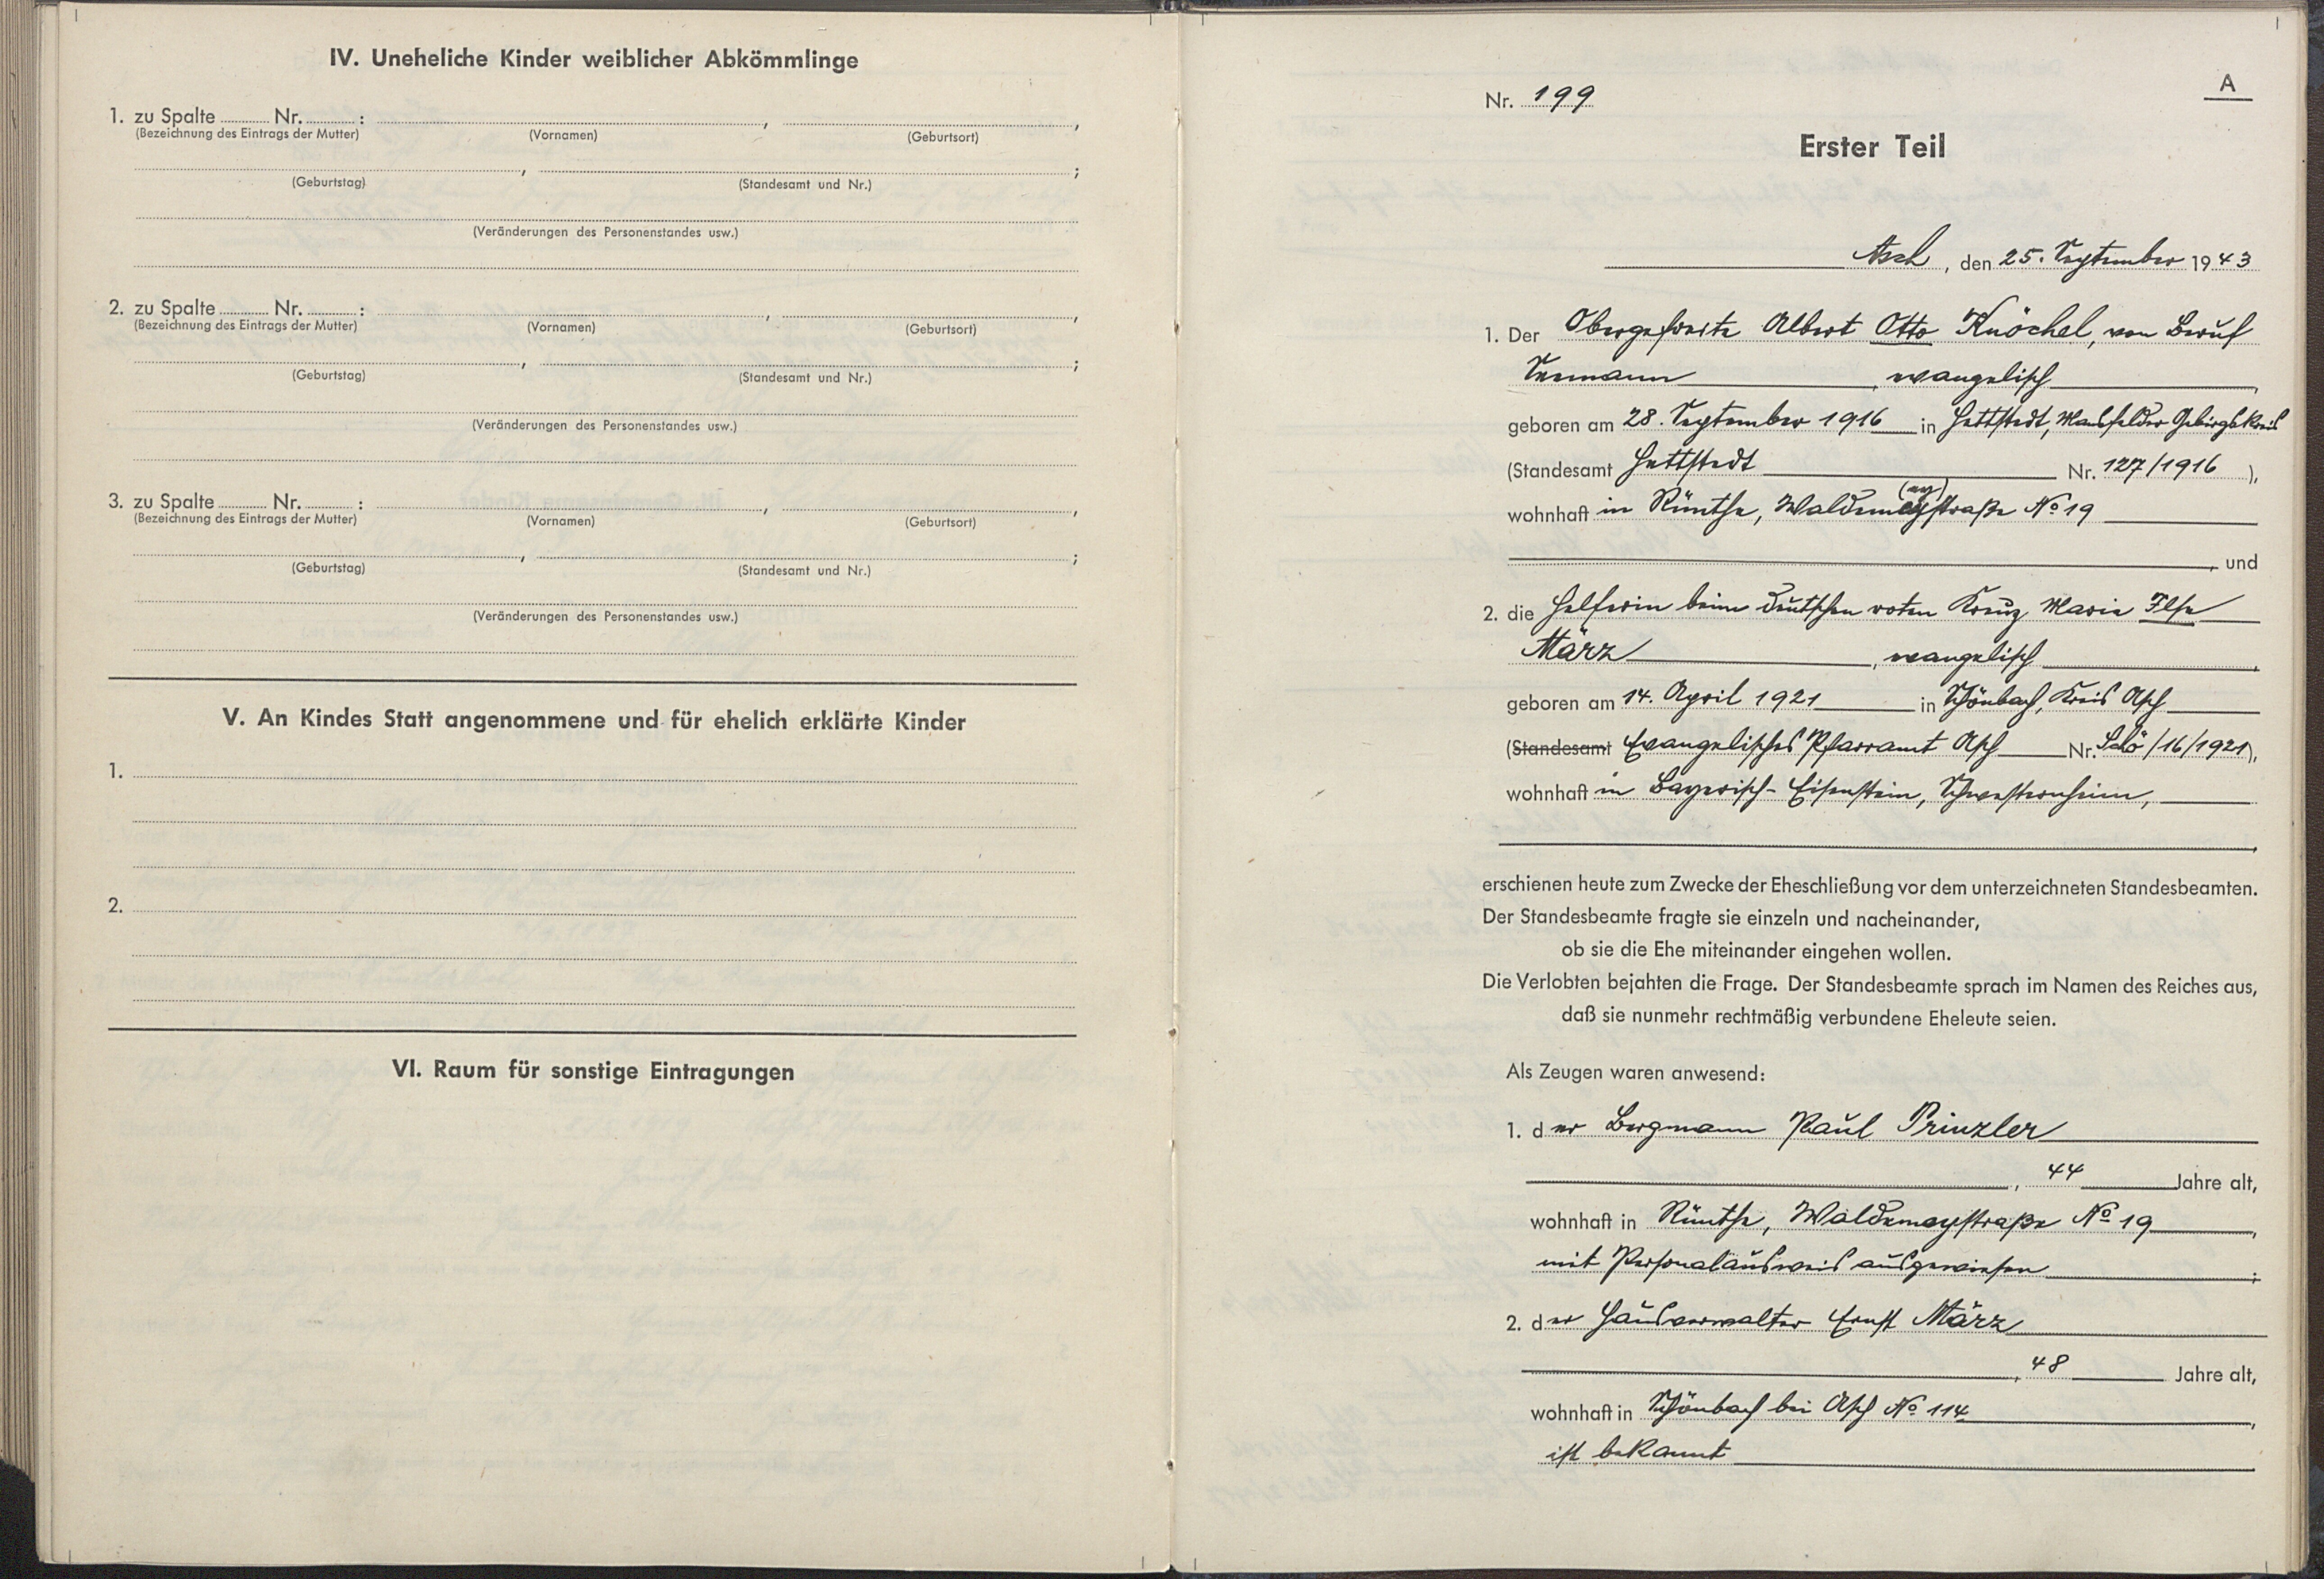 IV. Uneheliche Kinder weiblicher Abkömmlinge
1. zu Spalte ........ Nr. ........ : , ,
(Bezeichnung des Eintrags der Mutter) (Vornamen) (Geburtsort)
, ;
(Geburtstag) (Standesamt und Nr.)
(Veränderungen des Personenstandes usw.)
2. zu Spalte ........ Nr. ........ : , ,
(Bezeichnung des Eintrags der Mutter) (Vornamen) (Geburtsort)
, ;
(Geburtstag) (Standesamt und Nr.)
(Veränderungen des Personenstandes usw.)
3. zu Spalte ........ Nr. ........ : , ,
(Bezeichnung des Eintrags der Mutter) (Vornamen) (Geburtsort)
, ;
(Geburtstag) (Standesamt und Nr.)
(Veränderungen des Personenstandes usw.)
V. An Kindes Statt angenommene und für ehelich erklärte Kinder
1.
2.
VI. Raum für sonstige Eintragungen
A
Nr. 199
Erster Teil
Asch, den 25. September 1943
1. Der Obergefreite Albert Otto Knöchel, von Beruf
Seemann, evangelisch,
geboren am 28. September 1916 in Hettstedt, Mansfelder Gebirgskreis
(Standesamt Hettstedt Nr. 127/1916),
(ey)
wohnhaft in Rünthe, Waldemeystraße No 19
, und
2. die Helferin beim Deutschen roten Kreuz Marie Ilse
März, evangelisch,
geboren am 14. April 1921 in Schönbach, Kreis Asch
(Standesamt Evangelisches Pfarramt Asch Nr. Schö/16/1921),
wohnhaft in Bayerisch-Eisenstein, Schwesternheim,
erschienen heute zum Zwecke der Eheschließung vor dem unterzeichneten Standesbeamten.
Der Standesbeamte fragte sie einzeln und nacheinander,
ob sie die Ehe miteinander eingehen wollen.
Die Verlobten bejahten die Frage. Der Standesbeamte sprach im Namen des Reiches aus,
daß sie nunmehr rechtmäßig verbundene Eheleute seien.
Als Zeugen waren anwesend:
1. der Bergmann Paul Prinzler
, 44 Jahre alt,
wohnhaft in Rünthe, Waldemeystraße No 19,
mit Personalausweis ausgewiesen;
2. der Hausverwalter Ernst März
, 48 Jahre alt,
wohnhaft in Schönbach bei Asch No 114,
ist bekannt